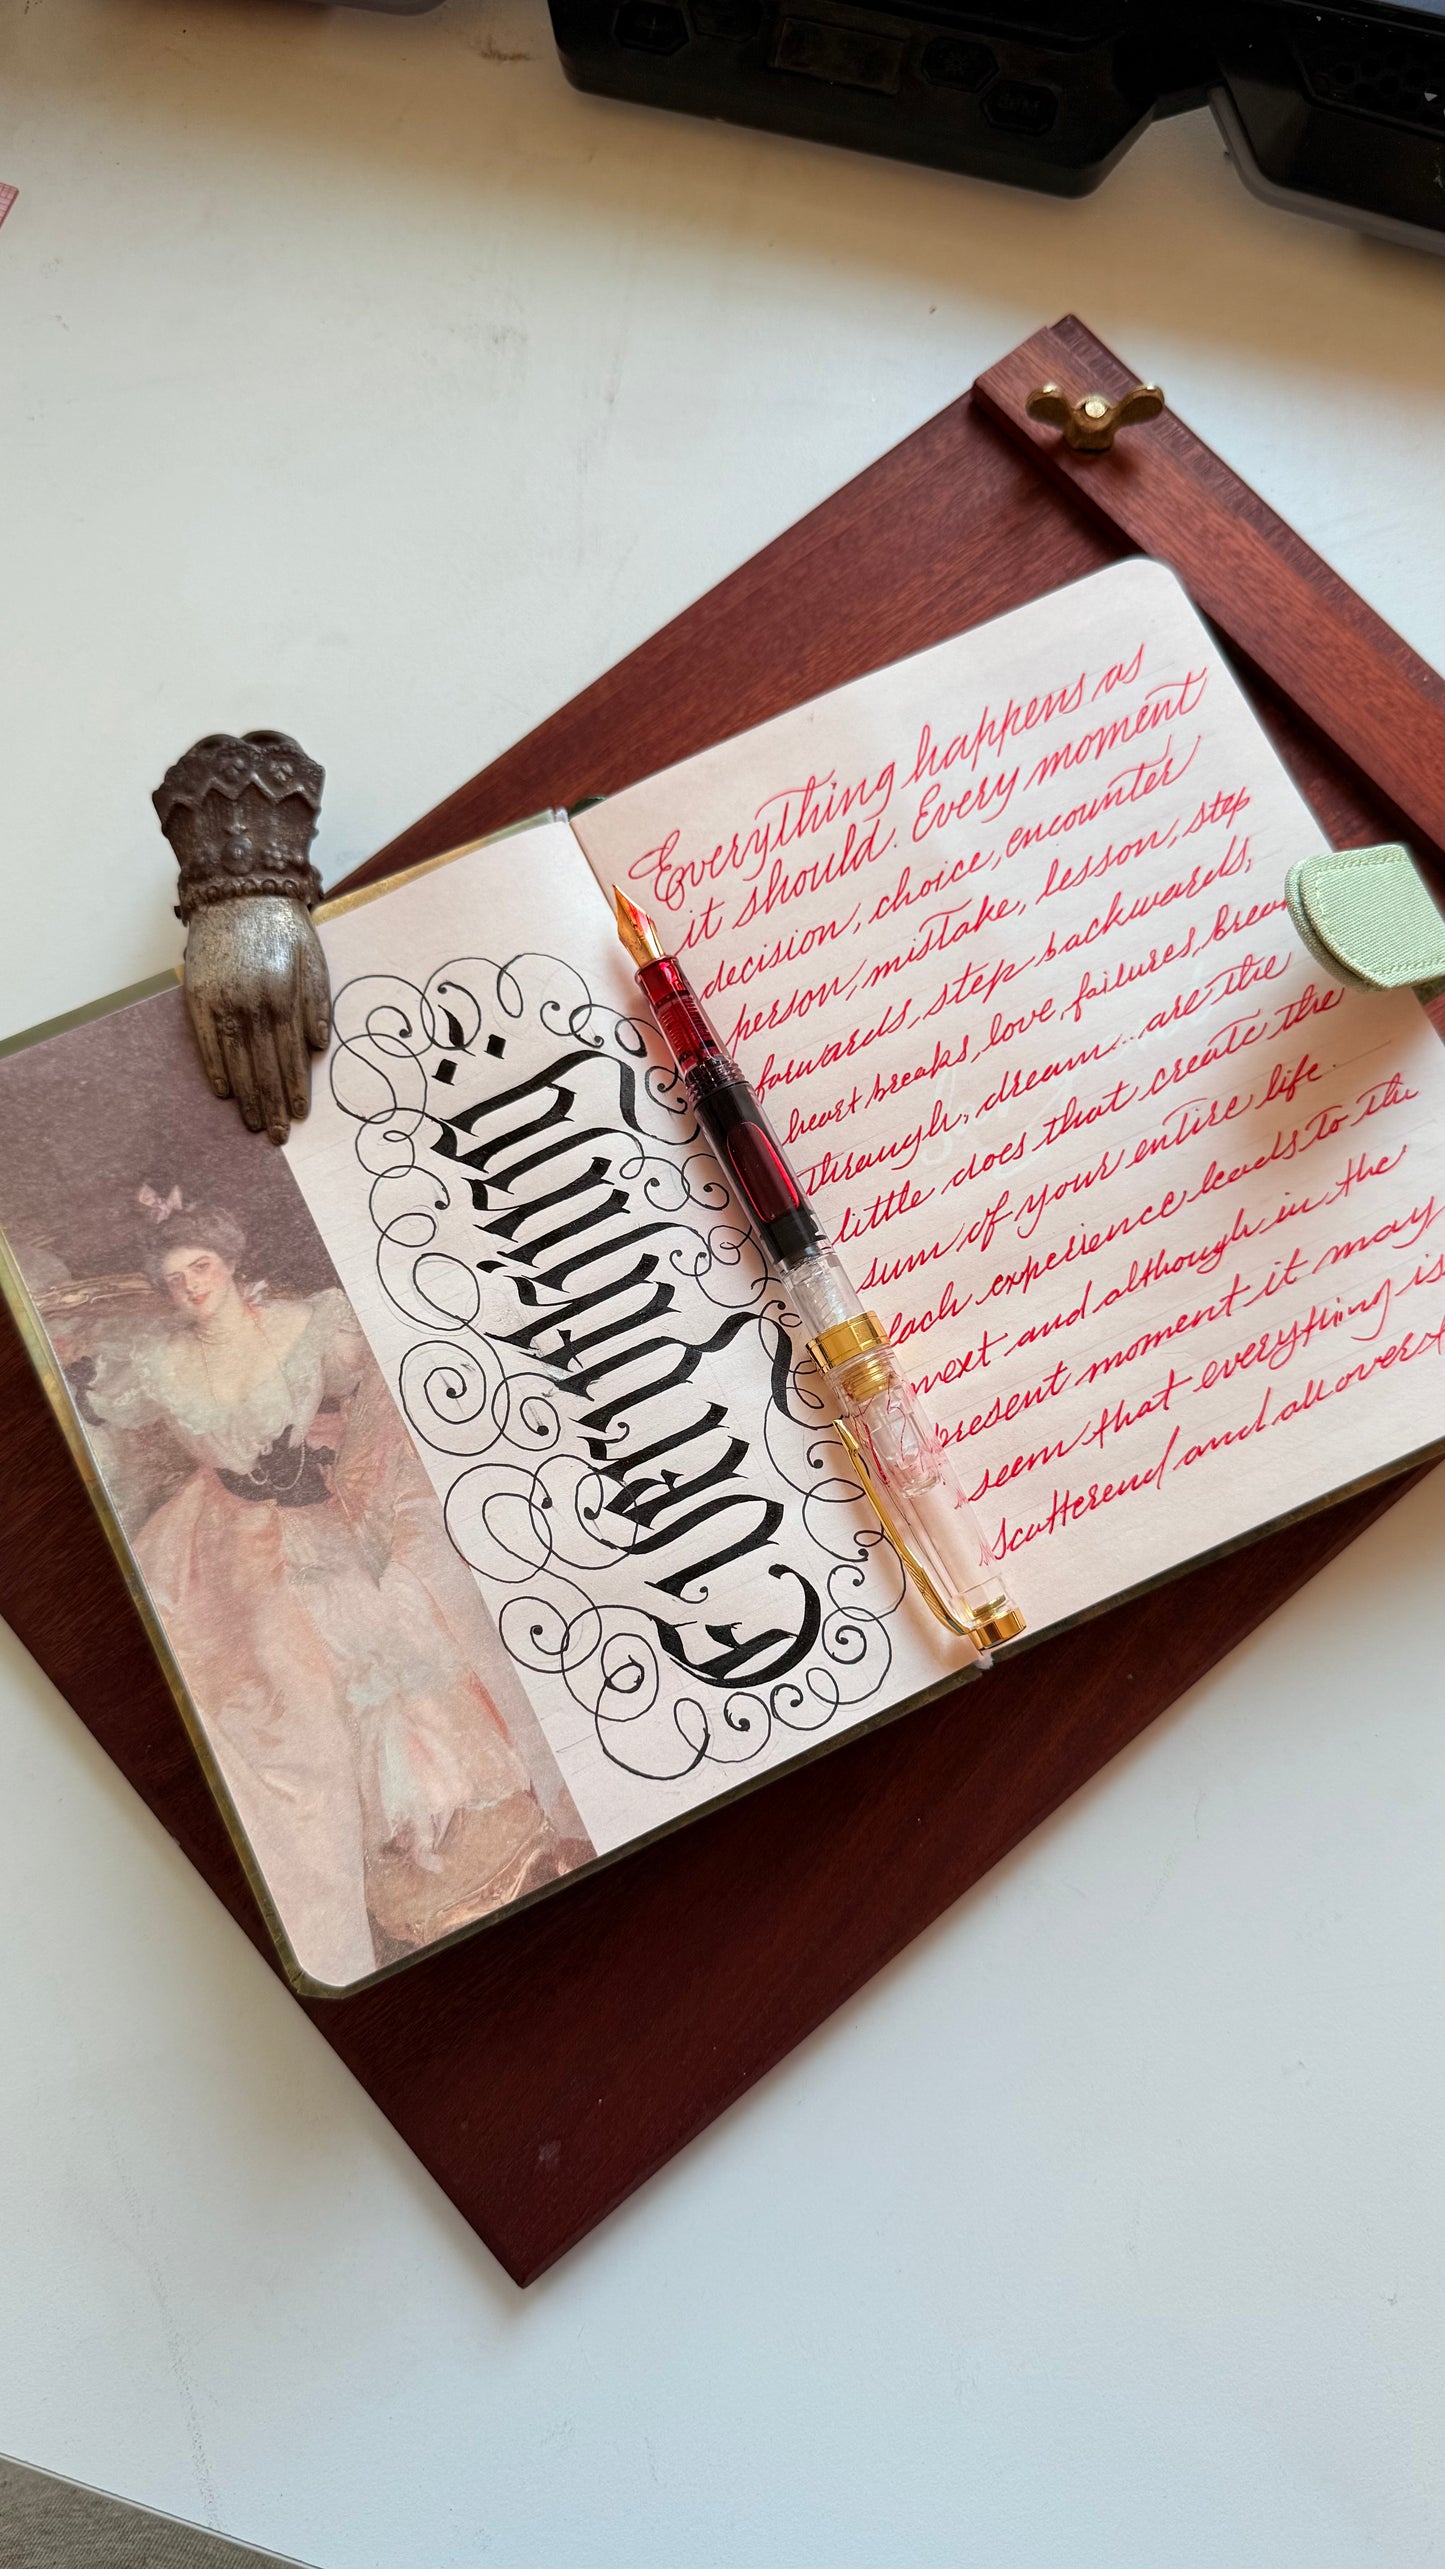 Everything
Everything happens as
it should. Every moment
decision, choice, encounter
person, mistake, lesson, step
forwards, step backwards,
heart breaks, love, failures, break
through, dream... are the
little does that create the
sum of your entire life.
Each experience leads to the
next and although in the
present moment it may
seem that everything is
scatterend and all over